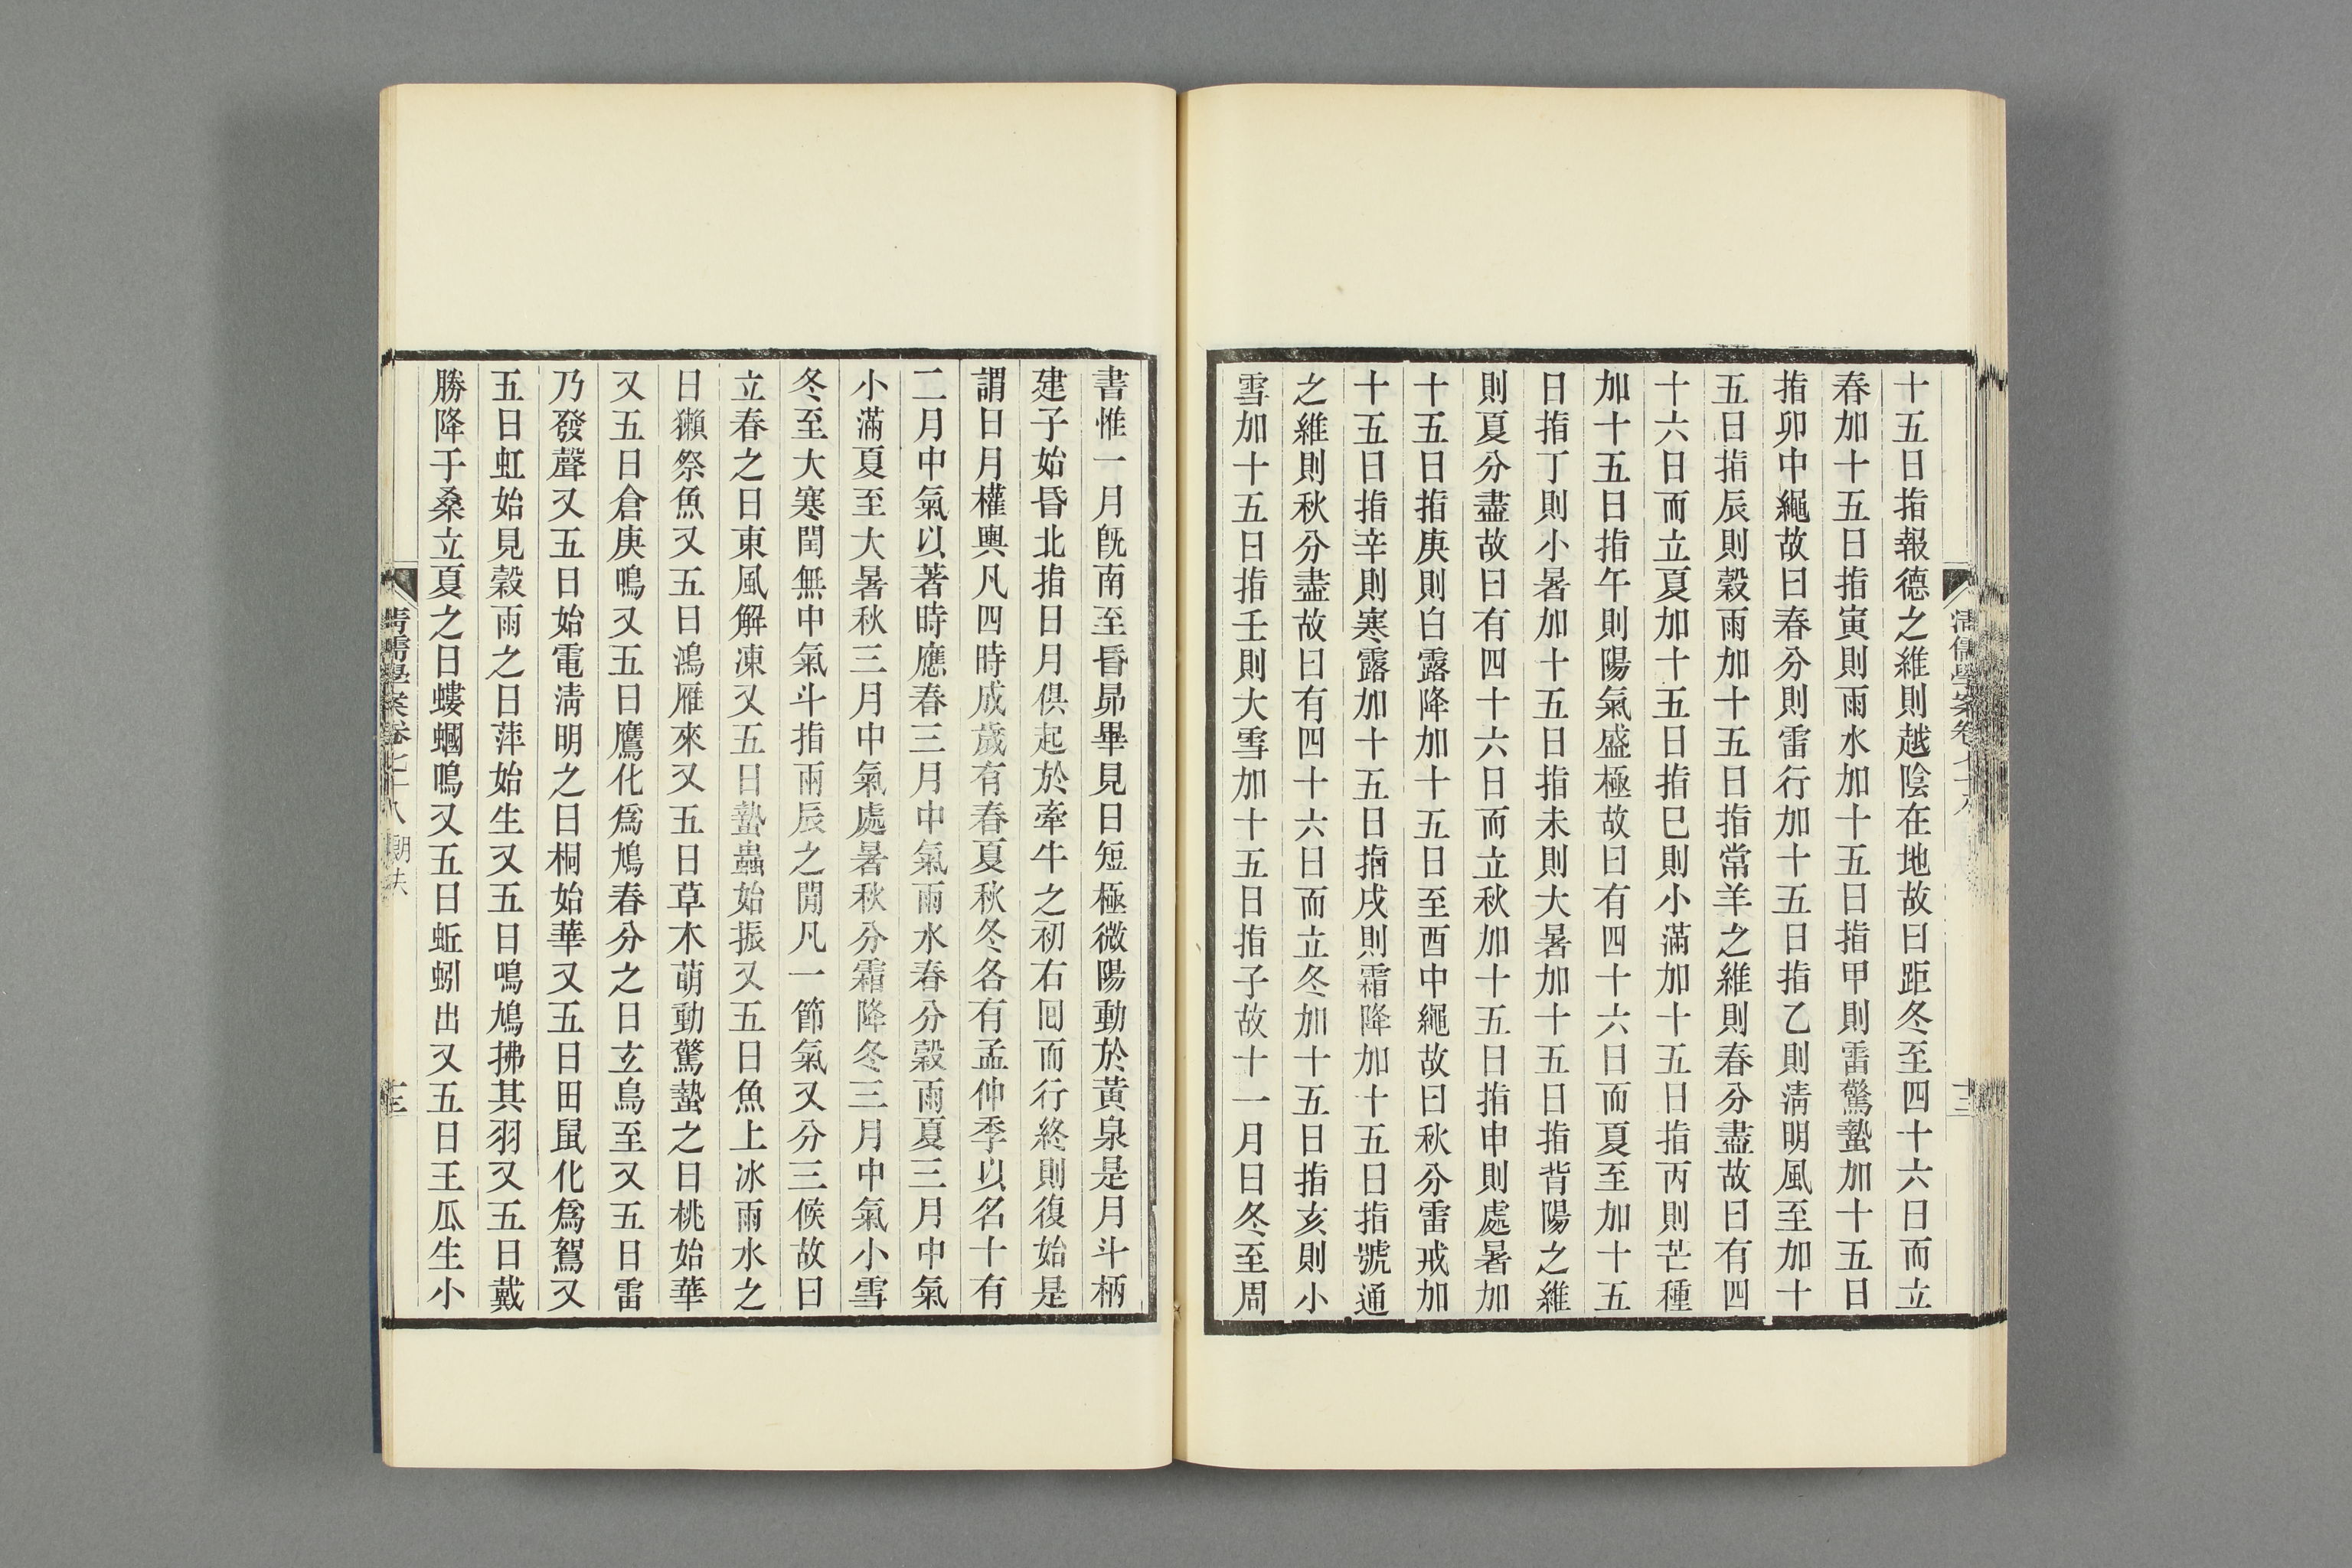 十五日指報德之維則越陰在地故曰距冬至四十六日而立
春加十五日指寅則雨水加十五日指甲則雷驚蟄加十五日
指卯中繩故曰春分則雷行加十五日指乙則淸明風至加十
五日指辰則穀雨加十五日指常羊之維則春分盡故曰有四
十六日而立夏加十五日指巳則小滿加十五日指丙則芒種
加十五日指午則陽氣盛極故曰有四十六日而夏至加十五
日指丁則小暑加十五日指未則大暑加十五日指背陽之維
則夏分盡故曰有四十六日而立秋加十五日指申則處暑加
十五日指庚則白露降加十五日至酉中繩故曰秋分雷戒加
十五日指辛則寒露加十五日指戌則霜降加十五日指號通
之維則秋分盡故曰有四十六日而立冬加十五日指亥則小
雪加十五日指壬則大雪加十五日指子故十一月日冬至周
書惟一月旣南至昏昴畢見日短極微陽動於黃泉是月斗柄
建子始昏北指日月俱起於牽牛之初右囘而行終則復始是
謂日月權輿凡四時成歲有春夏秋冬各有孟仲季以名十有
二月中氣以著時應春三月中氣雨水春分穀雨夏三月中氣
小滿夏至大暑秋三月中氣處暑秋分霜降冬三月中氣小雪
冬至大寒閏無中氣斗指兩辰之閒凡一節氣又分三候故曰
立春之日東風解凍又五日蟄蟲始振又五日魚上冰雨水之
日獺祭魚又五日鴻雁來又五日草木萌動驚蟄之日桃始華
又五日倉庚鳴又五日鷹化爲鳩春分之日玄鳥至又五日雷
乃發聲又五日始電淸明之日桐始華又五日田鼠化爲鴽又
五日虹始見穀雨之日萍始生又五日鳴鳩拂其羽又五日戴
勝降于桑立夏之日螻蟈鳴又五日蚯蚓出又五日王瓜生小
淸儒學案卷七十八